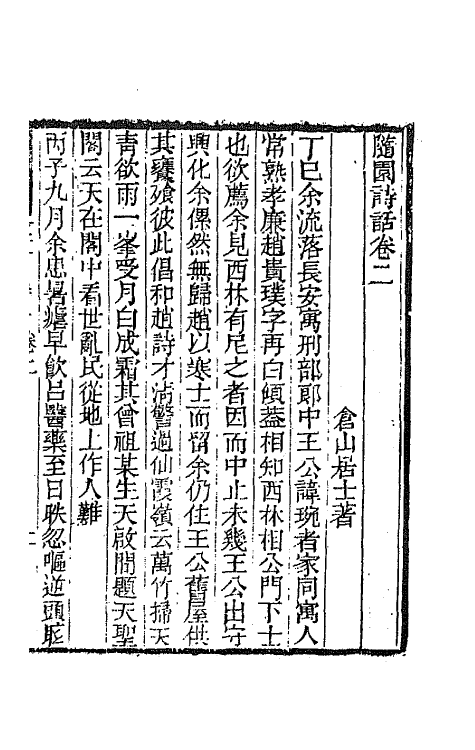 隨園詩話卷二
倉山居士著
丁巳余流落長安寓刑部郎中王公諱琬者家同寓人
常熟孝廉趙貴璞字再白傾蓋相知西林相公門下士
也欲薦余見西林有尼之者因而中止未幾王公出守
興化余傫然無歸趙以寒士而留余仍住王公舊屋供
其饔飧彼此倡和趙詩才清警過仙霞嶺云萬竹掃天
青欲雨一峯受月白成霜其曾祖某生天啟間題天聖
閣云天在閣中看世亂民從地上作人難
丙子九月余患暑瘧早飲呂醫藥至日昳忽嘔逆頭眩